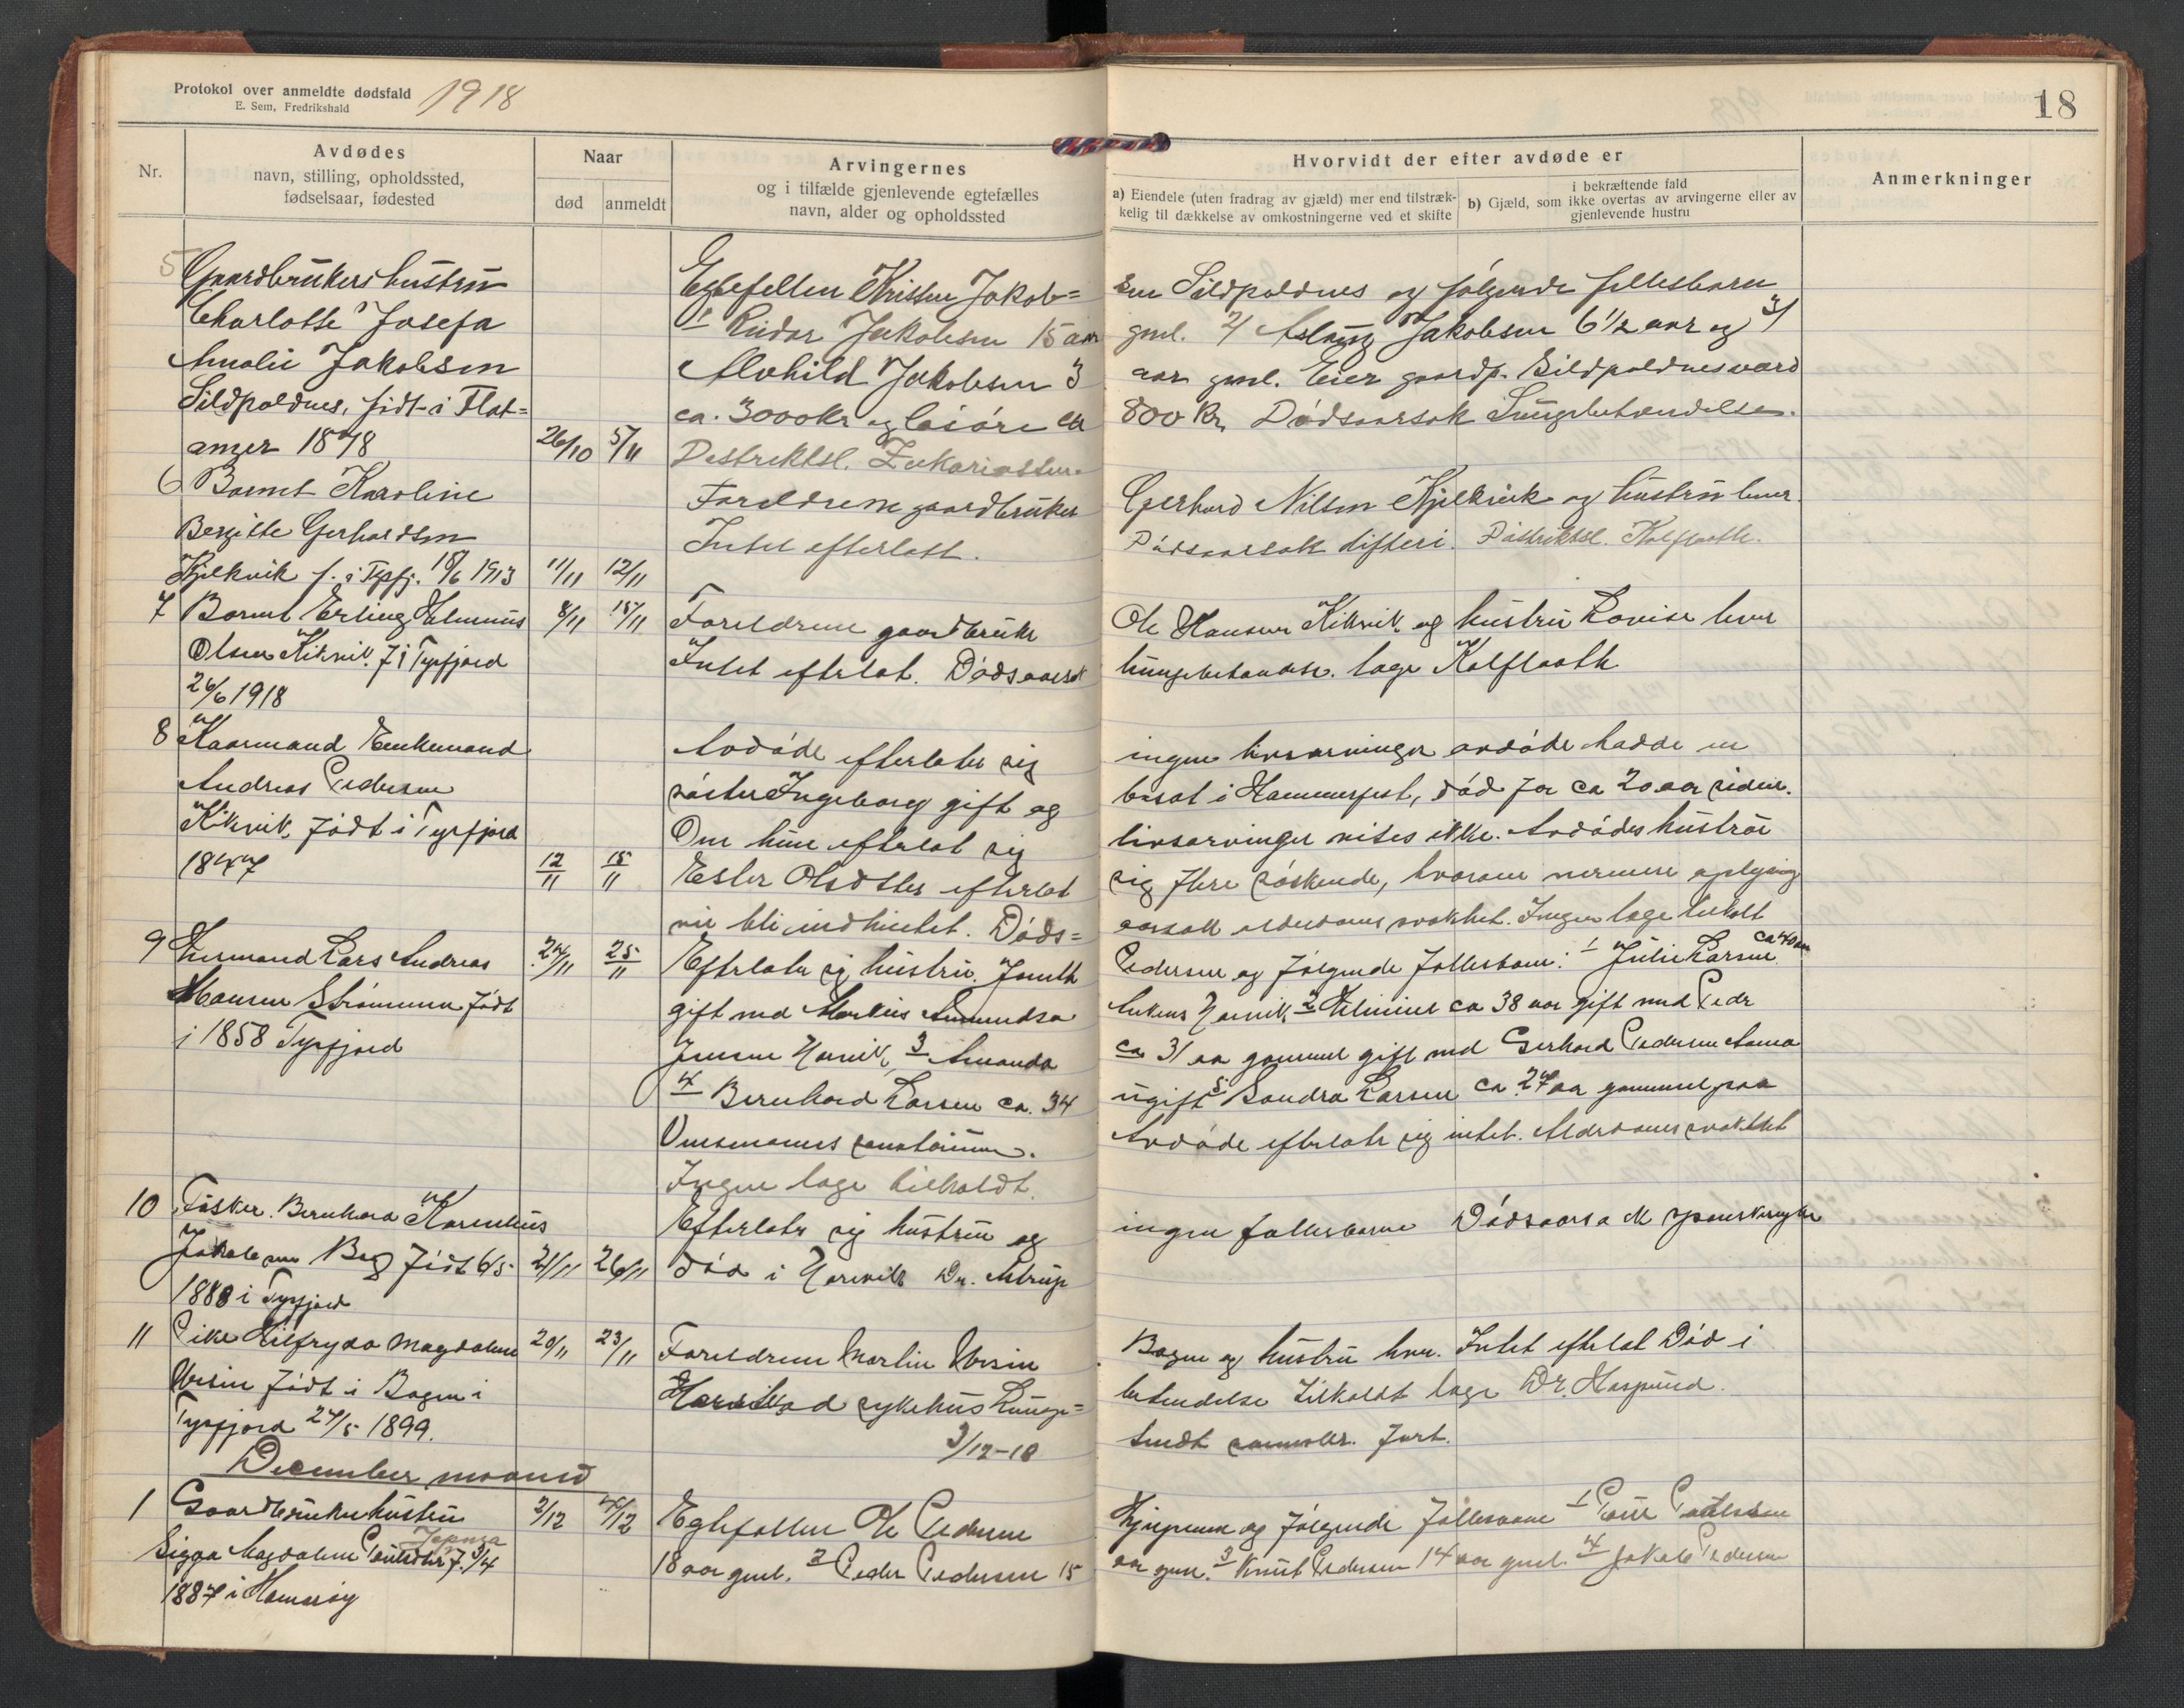 Protokol over anmeldte dødsfald 1918
E. Sem, Fredrikshald
18
Nr.
Avdødes
navn, stilling, opholdssted,
fødselsaar, fødested
Naar
død
anmeldt
Arvingernes
og i tilfælde gjenlevende egtefælles
navn, alder og opholdssted
Hvorvidt der efter avdøde er
a) Eiendele (uten fradrag av gjæld) mer end tilstræk-
kelig til dækkelse av omkostningerne ved et skifte
i bekræftende fald
b) Gjæld, som ikke overtas av arvingerne eller av
gjenlevende hustru
Anmerkninger
5 Gaardbrukerhustru
Charlotte Josefa
Amalie Jakobsen
Sildpoldnes, født i Flat=
anger 1878 26/10 5/11
Egtefellen Kristen Jakob= sen Sildpoldnes og følgende fellesbarn
1 Reidar Jakobsen 15 aar gml. 2/ Aslaug Jakobsen 6 1/2 aar og 3/
Alvhild Jakobsen 3 aar gml. Eier gaardp. Sildpoldnes værd
ca. 3000 kr og løsøre ca 800 kr. Dødsaarsak Lungebetændelse.
Destriktsl. Zakariassen
6 Barnet Karoline
Bergitte Gerhardsen
Kjelkvik f. i Tysfj. 18/6 1913 11/11 12/11
Foreldrene gaardbruker Gerhard Nilsen Kjelkvik og hustru lever.
Intet efterlatt. Dødsaarsak difteri. Distriktsl. Kolflaath.
7 Barnet Erling Helmius 8/11 15/11
Olsen Kikvik f i Tysfjord
26/6 1918
Foreldrene gaardbruker Ole Hansen Kikvik og hustru Lovise lever
Intet efterlat. Dødsaarsak lungebetændelse. læge Kolflaath
8 Kaarmand Enkemand
Andreas Pedersen
Kikvik født i Tysfjord
1847 12/11 15/11
Avdøde efterlater sig ingen livsarvinger avdøde hadde en
søster Ingeborg gift og bosat i Hammerfest, død for ca 20 aar siden.
Om hun efterlot sig livsarvinger vites ikke. Avdødes hustru
Ester Olsdtter efterlot sig flere søskende, hvorom nermere oplysning
vil bli indhentet. Døds= aarsak alderdoms svakhet. Ingen læge tilkaldt
9 Lars Andreas 24/11 25/11
Hansen Strømmen født
i 1858 Tysfjord
Efterlater sig hustru Pedersen og følgende fellesbarn: 1 Julie Larsen ca 40 aar
gift med Markus Amundsen Narvik 2 ca 38 aar gift med Peder
Jensen Narvik, 3 Amanda ca 31 aar gammel gift med Gerhard Pedersen
4 Bernhard Larsen ca. 34 ugift 5 Sandra Larsen ca 27 aar gammel paa
sanatorium. Avdøde efterlater sig intet. Alderdomssvakhet
Ingen læge tilkaldt.
10 Fisker Bernhard
Jakobsen født 6/5 21/11 26/11
1888 i Tysfjord
Efterlater sig hustru og ingen fellesbarn Dødsaarsak spanskesyke
død i Narvik Dr. Astrup
11 Pike Hilfryda Magdalene 20/11 23/11
Ursin født i Bogen i
Tysfjord 24/5 1899.
Foreldrene Martin Ursin Bogen og hustru lever. Intet efterlat Død i
Harstad sykehus Lunge= betendelse tilkaldt læge Dr.
3/12-18 Sendt
December maaned
1 Gaardbrukerhustru 2/12 4/12
Sigga Magdalene f. 3/4
1887 i Hamarøy
Egtefellen Ole Pedersen og følgende fellesbarn 1
18 aar gml. 2 Peder Pedersen 15 aar gml. 3 Knut Pedersen 14 aar gml. 4 Jakob Pedersen